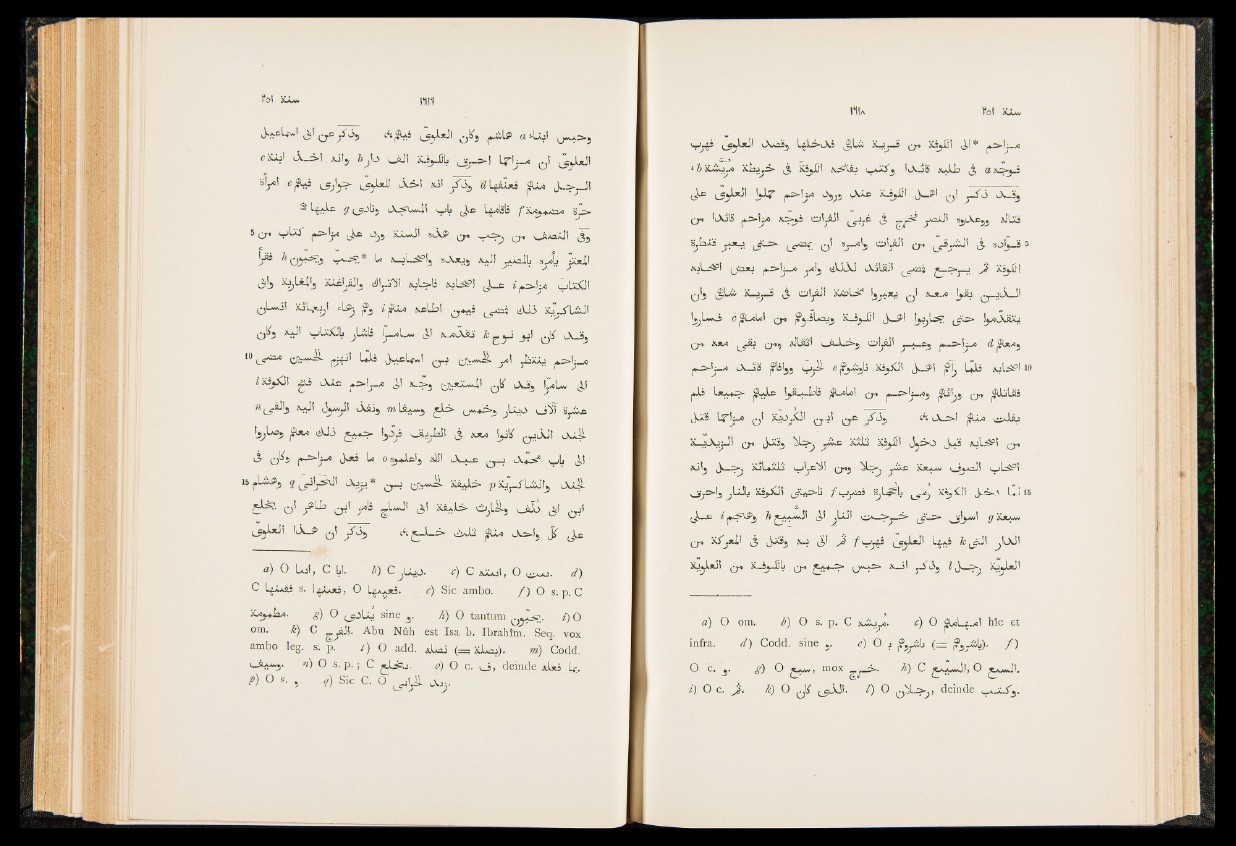 سنة ٢٥١ ١٦١٨
مزاحم *الى الكوفة من قريـة شاهى فدخلها وقصد العلوىّ فهرب
فوجّه a فى طلبه قائدا وكتب بفتحه الكوفة فى خريطة مريّشة b،
وقد ذكر ان اهل الكوفة عند ورود مزاحم حملوا العلوىّ على
قتاله ووعدوه النصر فخرج فى غربىّ الفرات فوجّه مزاحم قائدا من
5 قوّاده فى الشرقىّ من الفرات وامره ان يمضى حتى يعبر قنطرة
الكوفة ثم يرجع فمضى القائد لذلك وامر مزاحم بعض اصحابه
الذين بقوا معه ان يعبروا مخاضة الفرات فى قرية شاهى وان
يتقدّموا حتى يحاربوا اهل الكوفة ويصافّوهم من امامهم c فساروا
ومعهم d مزاحم وعبر الفرات وخلف اثقاله ومن بقى معه من
10 اصحابه فلمّا رآهم اهل الكوفة ناوشوهم e الحرب ووافاهم قائد مزاحم
فقاتلهم من ورائهم ومزاحم من امامهم فاطبقوا عليهم جميعا فلم
يفلت منهم احد، وذكر عن ابن الكرديّة ان مزاحما قتل
من اصحابه قبل دخول الكوفة ثلثة عشر رجلا وقتل من الزيديّة
اصحاب الصوف سبعة عشر رجلا ومن الاعراب ثلثمائة رجل وانه
15 لمّا دخل الكوفة رمى بالحجارة فضرب f ناحيتى الكوفة بالنار واحرق
سبعة g اسواق حتى خرجت النار الى السبيع h وهجم i على
الدار التى k فيها العلوىّ فهرب f ثم اتى به وقتل فى المعركة من
العلويّة رجل l وذكر انه حبس جميع من بالكوفة من العلويّة
a) O om. b) O s. p. C مريشه. c) O امامهم hîc et
infra. d) Codd. sine و. e) O باشروهم (= باشروهم). f)
O c. و. g) O سبع, mox خرج. h) C السبيع, O السبع.
i) O c. ثم. k) O الذى كان. l) O رجلان, deinde وكتب.
سنة ٢٥١ ١٦١٩
وحبس ابناء a هاشم وكان العلوىّ فيهم، وذكر عن ابى اسماعيل
العلوىّ ان مزاحما احرق بالكوفة الف دار b وانه اخذ ابنة c
الرجل منهم فعنفها d وذكر انه اخذ للعلوىّ جوارى فيهم e امرأة
حرّة مضمومة f فاقامها على باب المسجد ونادى g عليها
5 وفى النصف من رجب من هذه السنة ورد على مزاحم كتاب من
المعتزّ يأمره بالمصير اليه ويعده واصحابه ما *يحبّ ويحبّون h فقرأ
الكتاب مزاحم i على اصحابه فاجابه الاتراك والفراغنة والمغاربة وابى
الشاكريّة ذلك فمضى فيمن اطاعه منهم i وهم زهاء اربعمائة انسان
وقد كان ابو نوح k تقدّمه الى سامرّا فاشار بالكتاب اليه وكان
10 مزاحم ينتظر امر الحسين بن اسماعيل فلمّا انهزم الحسين مضى
الى سامرّا وقد كان المستعين وجّه الى مزاحم عند فتح الكوفة l
عشرة آلاف دينار وخمس خلع وسيفا m ونفذ الرسول اليه والفى n
الجند الذين كانوا معه فى الطريف فردّوا جميع ذلك معهم وصاروا
الى باب محمّد بن عبد الله واعلموه o ما فعل مزاحم وكان فى
15 الجند والشاكريّة p خليفة الحسين بن *يزيد الحرّانى q وهشام
ابن ابى دلف والحارث خليفة ابى الساج فامر ابن طاهر ان يخلع
على كلّ واحد منهم ثلث خلع، وذكر ان هذا العلوىّ
a) O اننا, C ابا. b) C دينار. c) C ابنته, O بنت. d)
C فعنفها s. فعنفها, O فعنقها. e) Sic ambo. f) O s. p. C
مطمومة. g) O ينادى sine و. h) O tantum يحبون. i) O
om. k) C الفرج. Abu Nûh est Isa b. Ibrahîm. Seq. vox
ambo leg. s. p. l) O add. (=). m) Codd.
وسيف. n) O s. p.; C. o) O c. ف, deinde بما فعله.
p) O s. و q) Sic C. O زيد الحرانى.